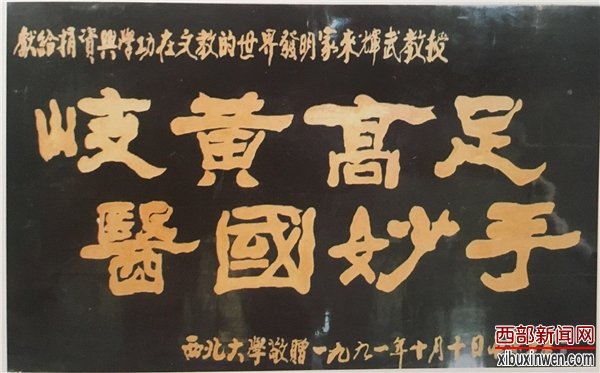 獻給捐資興學功在文教的世界發明家來輝武教授
岐黄高足
醫國妙手
西北大學敬贈一九九一年十月十日
西部新闻网
xibuxinwen.com